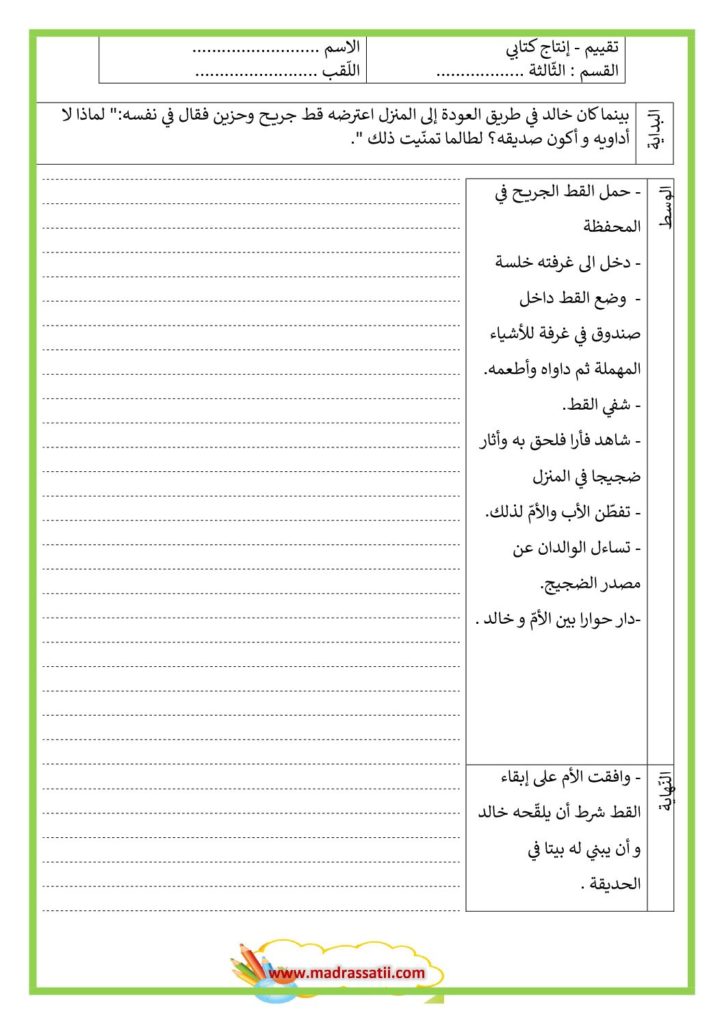 تقييم - إنتاج كتابي
الاسم ..........................
القسم : الثّالثة ..................
اللّقب .........................
البداية
بينما كان خالد في طريق العودة إلى المنزل اعترضه قط جريح وحزين فقال في نفسه:" لماذا لا
أداويه و أكون صديقه؟ لطالما تمنّيت ذلك ".
الوسط
- حمل القط الجريح في
المحفظة
- دخل الى غرفته خلسة
- وضع القط داخل
صندوق في غرفة للأشياء
المهملة ثم داواه وأطعمه.
- شفي القط.
- شاهد فأرا فلحق به وأثار
ضجيجا في المنزل
- تفطّن الأب والأمّ لذلك.
- تساءل الوالدان عن
مصدر الضجيج.
-دار حوارا بين الأمّ و خالد .
النّهاية
- وافقت الأم على إبقاء
القط شرط أن يلقّحه خالد
و أن يبني له بيتا في
الحديقة .
www.madrassatii.com